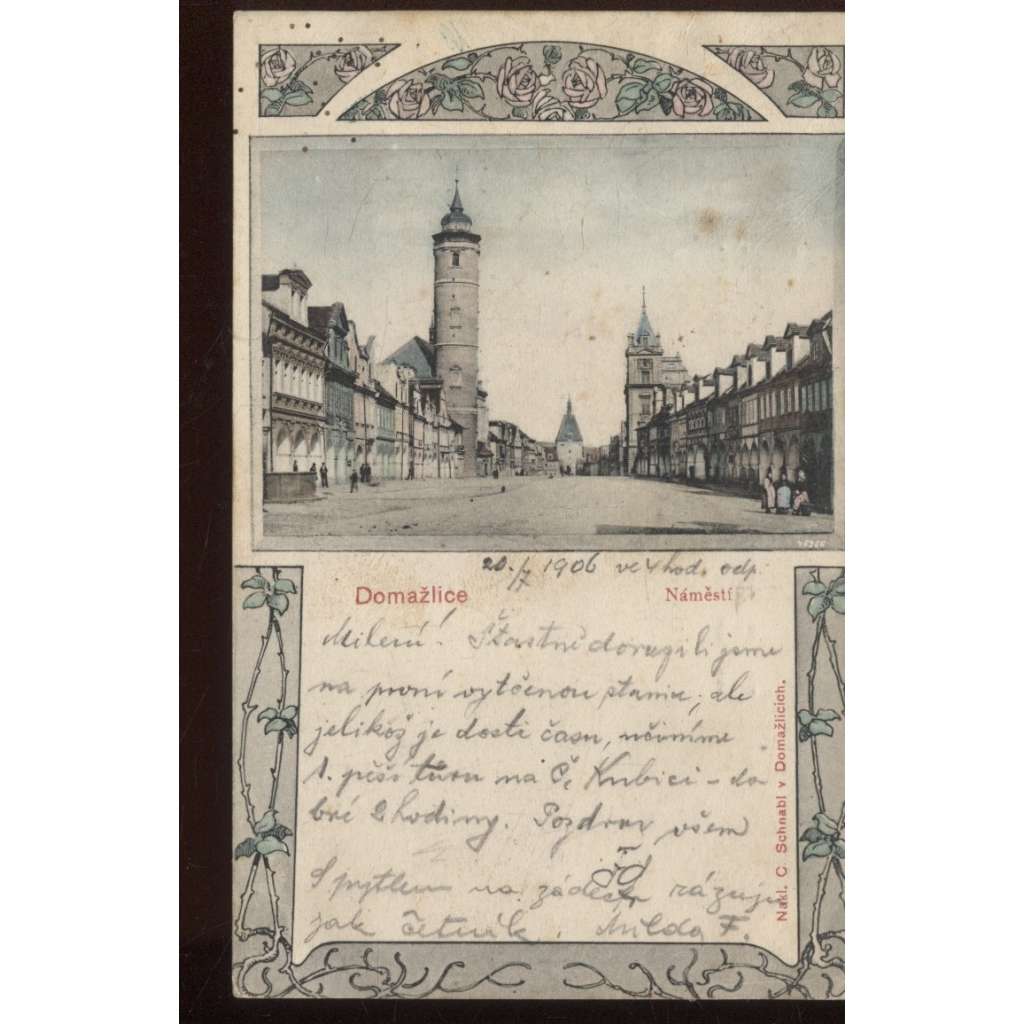 20./7 1906 ve 4 hod. odp.
Domažlice
Náměstí
Milení! Šťastně dorazili jsme
na první vytčenou stanici, ale
jelikož je dosti času, učiníme
1. pěší túru na Č. Kubici – do
bré 2 hodiny. Pozdrav všem
S pytlem na zádech rázuju
jak četník. Milda F.
Nakl. C. Schnabl v Domažlicích.